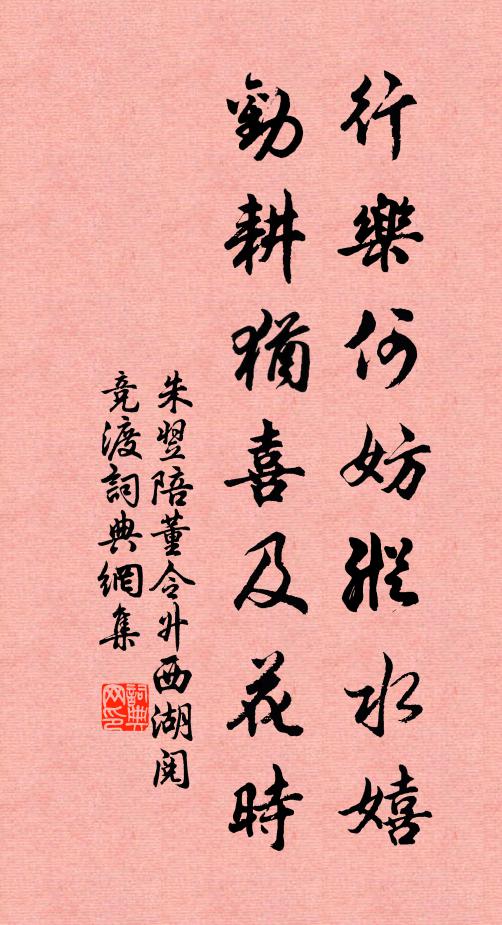 行樂何妨縱水嬉
勸耕猶喜及花時
朱翌陪董令升西湖閱
競渡詞典網集
詞典
网印